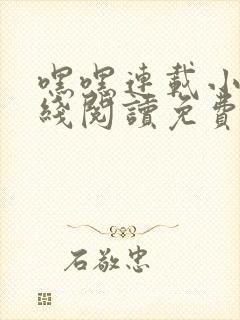 嘿嘿連載小
綫閱讀免費
石敬忠